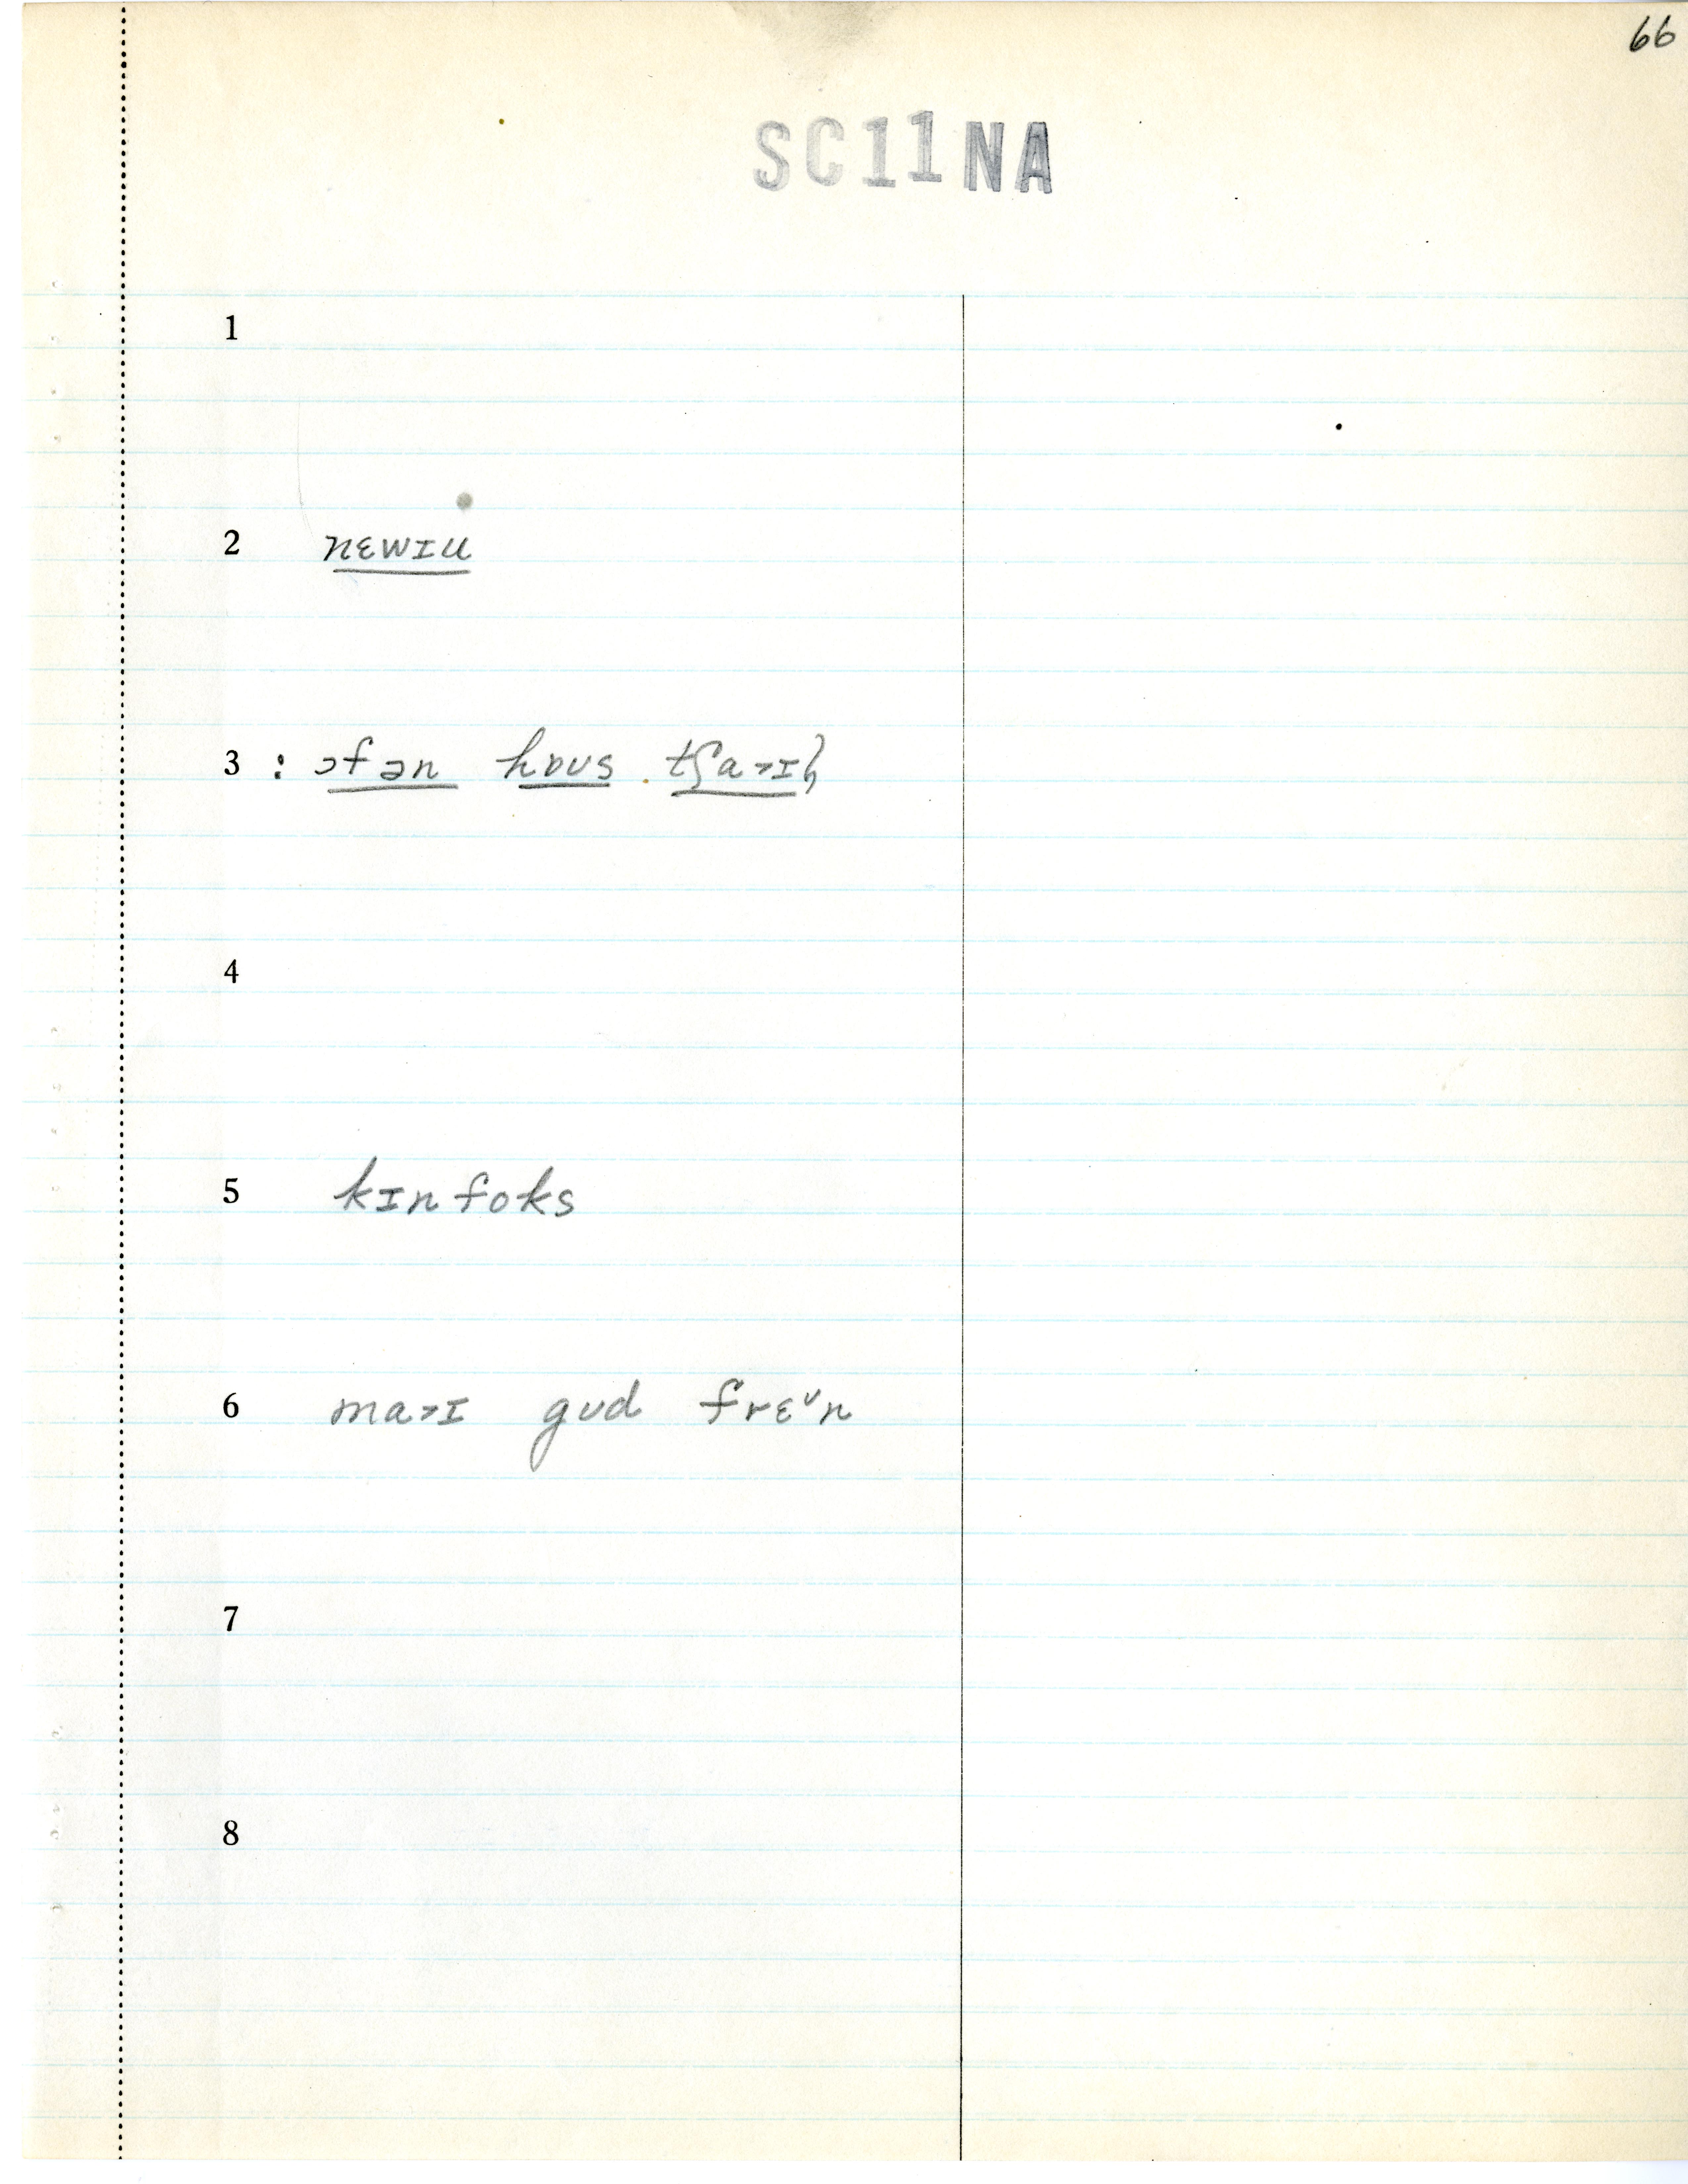 66
SC11NA
1
2 nɛwɪu
3 : ɔfən hɒʊs tʃa˃ɪl
4
5 kɪnfoks
6 ma˃ɪ gʊd frɛ˅n
7
8